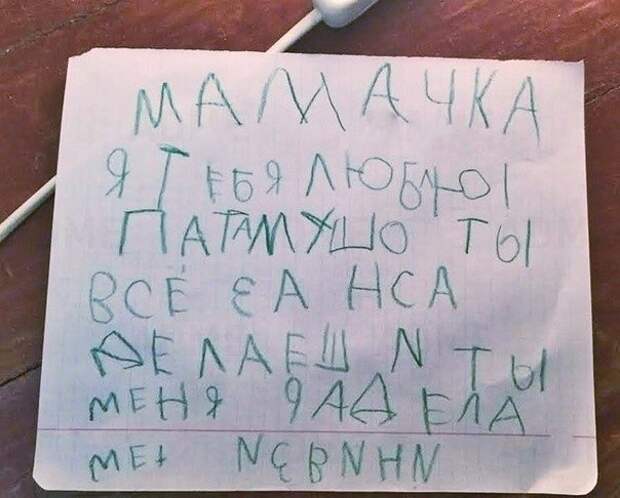 МАМАЧКА
Я ТЕБЯ ЛЮБЛЮ
ПАТАМУШО ТЫ
ВСЁ ЗА НСА
ДЕЛАЕШ И ТЫ
МЕНЯ ЯАДЕЛА
МЕ ИЗВИНИ